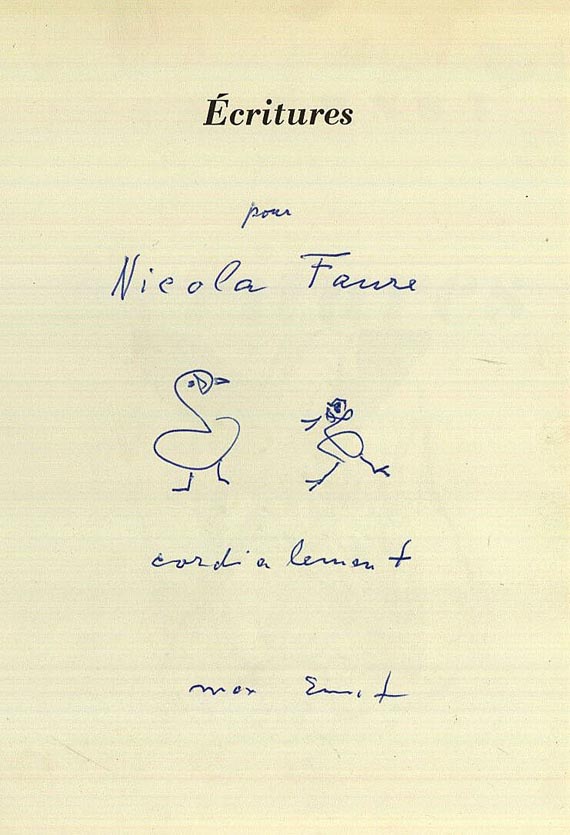 Écritures
pour
Nicola Faure
cordialement
max Ernst